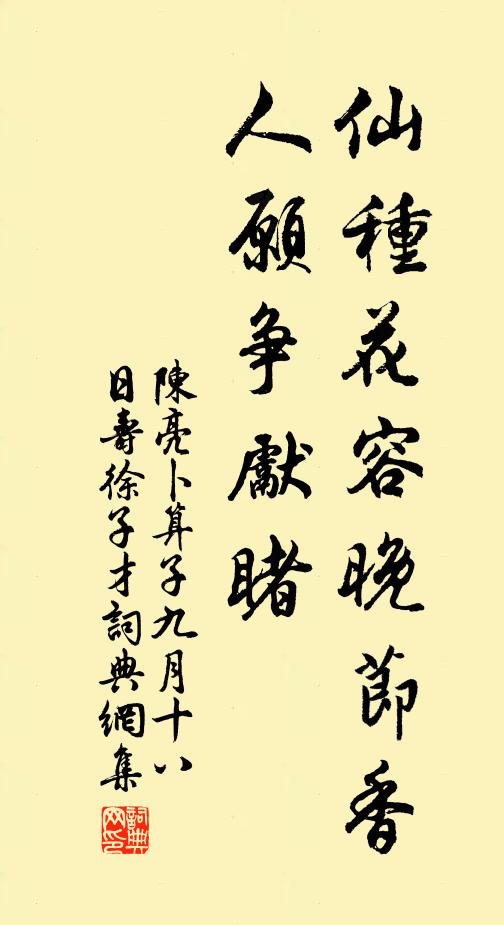 仙種花容晚節香
人願爭獻睹
陳亮卜算子九月十八
日壽徐子才詞典網集
詞典网印